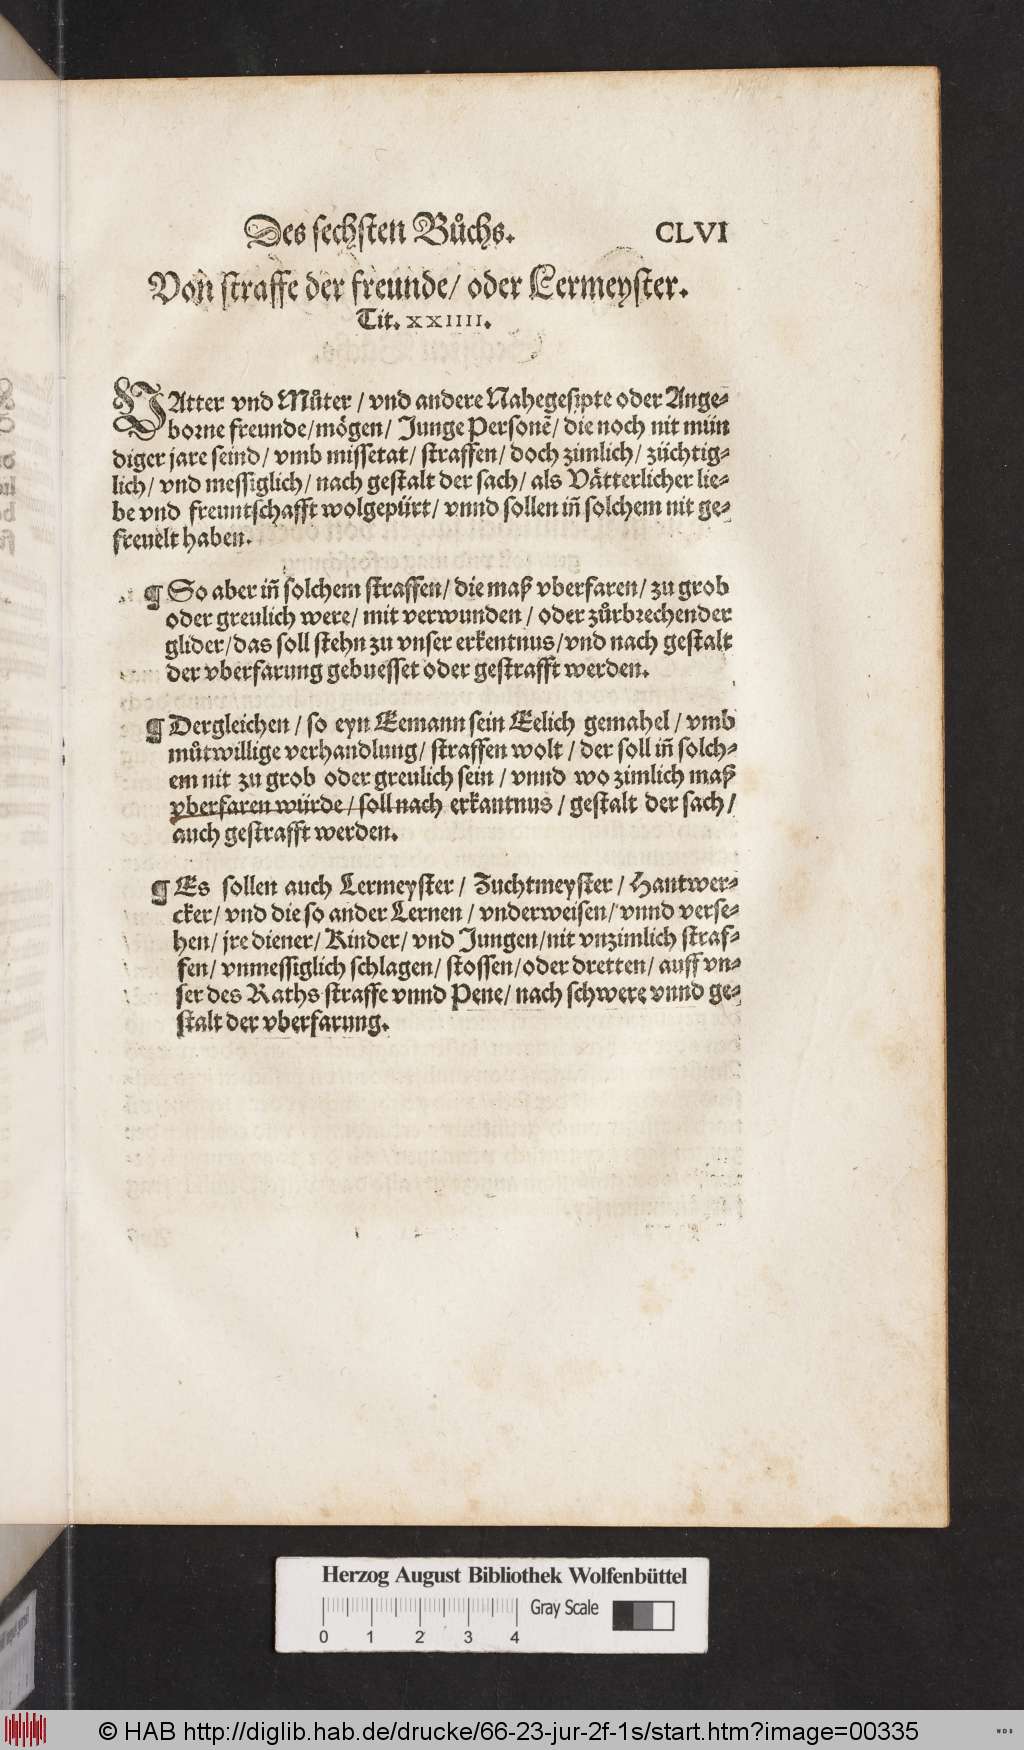 Des sechsten Bůchs. CLVI
Von straffe der freunde/ oder Lermeyster.
Tit. XXIIII.
VAtter vnd Můter / vnd andere Nahegesipte oder Ange-
borne freunde/ mögen/ Junge Personẽ/ die noch nit mün
diger jare seind/ vmb missetat/ straffen/ doch zimlich/ züchtig-
lich/ vnd messiglich/ nach gestalt der sach/ als Vätterlicher lie-
be vnd freuntschafft wolgepürt/ vnnd sollen iñ solchem nit ge-
freuelt haben.
¶ So aber iñ solchem straffen/ die maß vberfaren/ zu grob
oder greulich were/ mit verwunden / oder zůrbrechender
glider/ das soll stehn zu vnser erkentnus/ vnd nach gestalt
der vberfarung gebuesset oder gestrafft werden.
¶ Dergleichen / so eyn Eemann sein Eelich gemahel / vmb
můtwillige verhandlung/ straffen wolt / der soll iñ solch-
em nit zu grob oder greulich sein / vnnd wo zimlich maß
vberfaren würde/ soll nach erkantnus / gestalt der sach/
auch gestrafft werden.
¶ Es sollen auch Lermeyster / Zuchtmeyster / Hantwer-
cker/ vnd die so ander Lernen / vnderweisen/ vnnd verse-
hen/ jre diener/ Kinder/ vnd Jungen/ nit vnzimlich straf-
fen/ vnmessiglich schlagen/ stossen/ oder dretten/ auff vn-
ser des Raths straffe vnnd Pene/ nach schwere vnnd ge-
stalt der vberfarung.
Herzog August Bibliothek Wolfenbüttel
Gray Scale
0 1 2 3 4
© HAB http://diglib.hab.de/drucke/66-23-jur-2f-1s/start.htm?image=00335